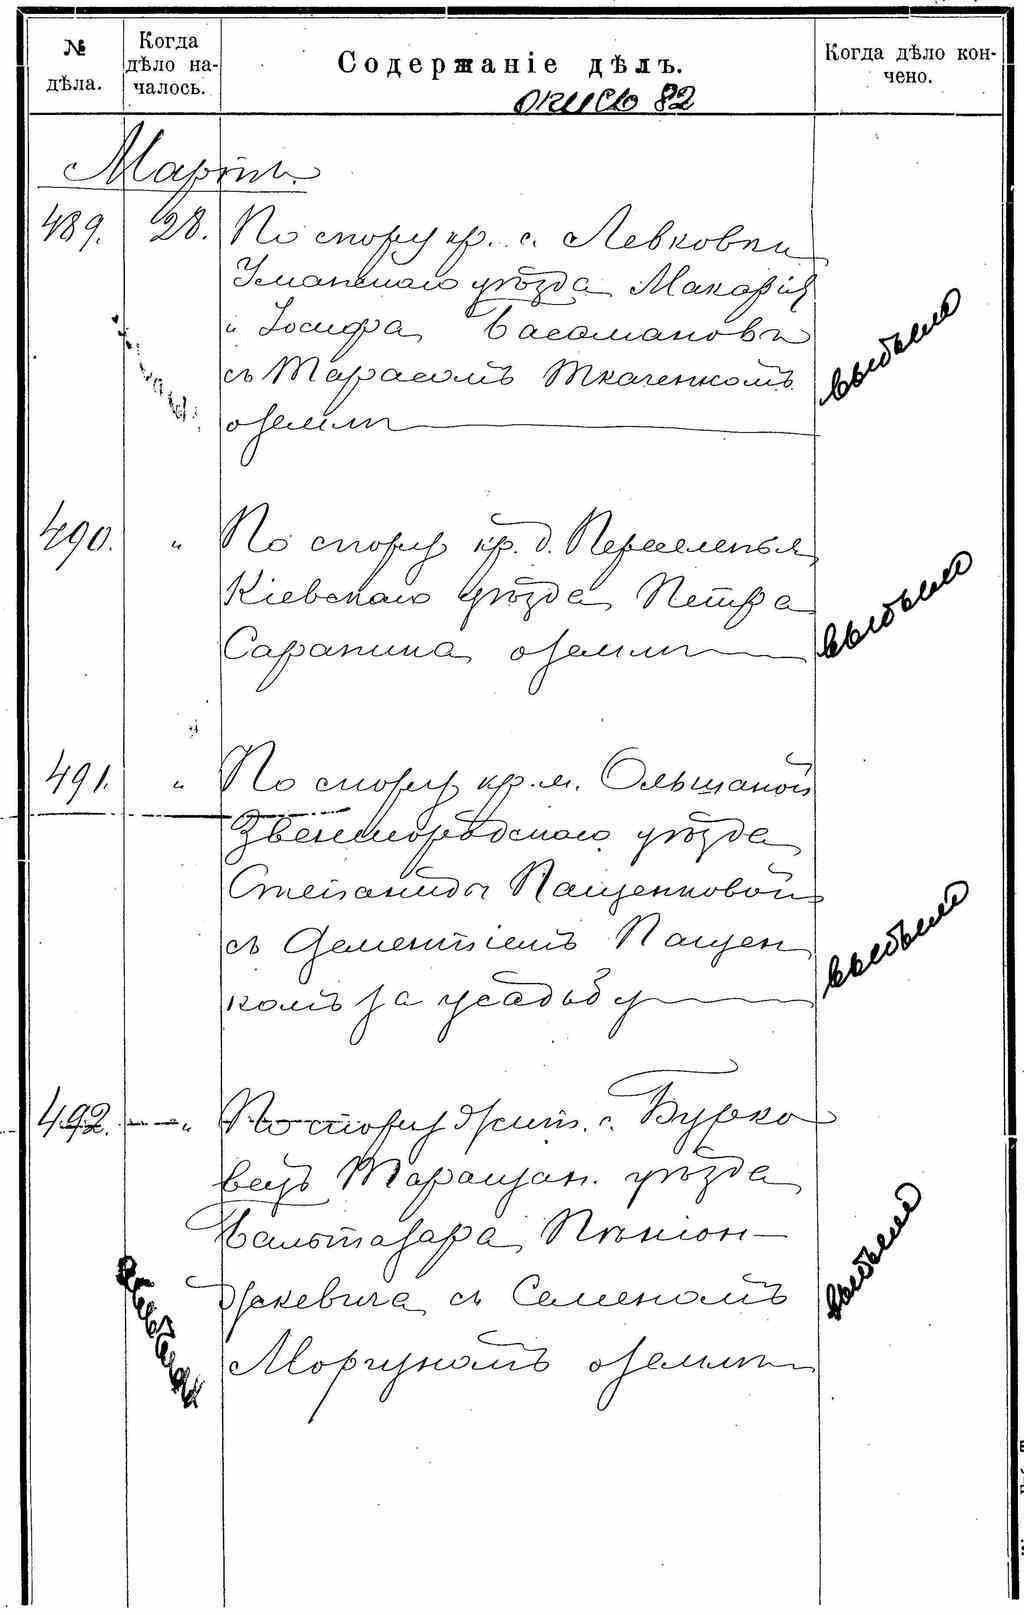 № дѣла.
Когда дѣло на-
чалось.
Содержаніе дѣлъ.
Когда дѣло кон-
чено.
опись 82
Мартъ.
489. 28. По спору кр. с. Левковки
Уманскаго уѣзда Макарія
и Іосифа Басамановъ
съ Тарасомъ Ткаченкомъ
о землѣ
выбыло
490. " По спору кр. д. Переселенья
Кіевскаго уѣзда Петра
Сарапина о землѣ
выбыло
491. " По спору кр. м. Ольшаной
Звенигородскаго уѣзда
Степаниды Пащенковой
съ Дементіемъ Пащен
комъ за усадьбу
выбыло
492. " По спору жит. с. Бурко
вецъ Таращан. уѣзда
Бальтазара
джевича съ Семеномъ
Моргуномъ о землѣ
выбыло